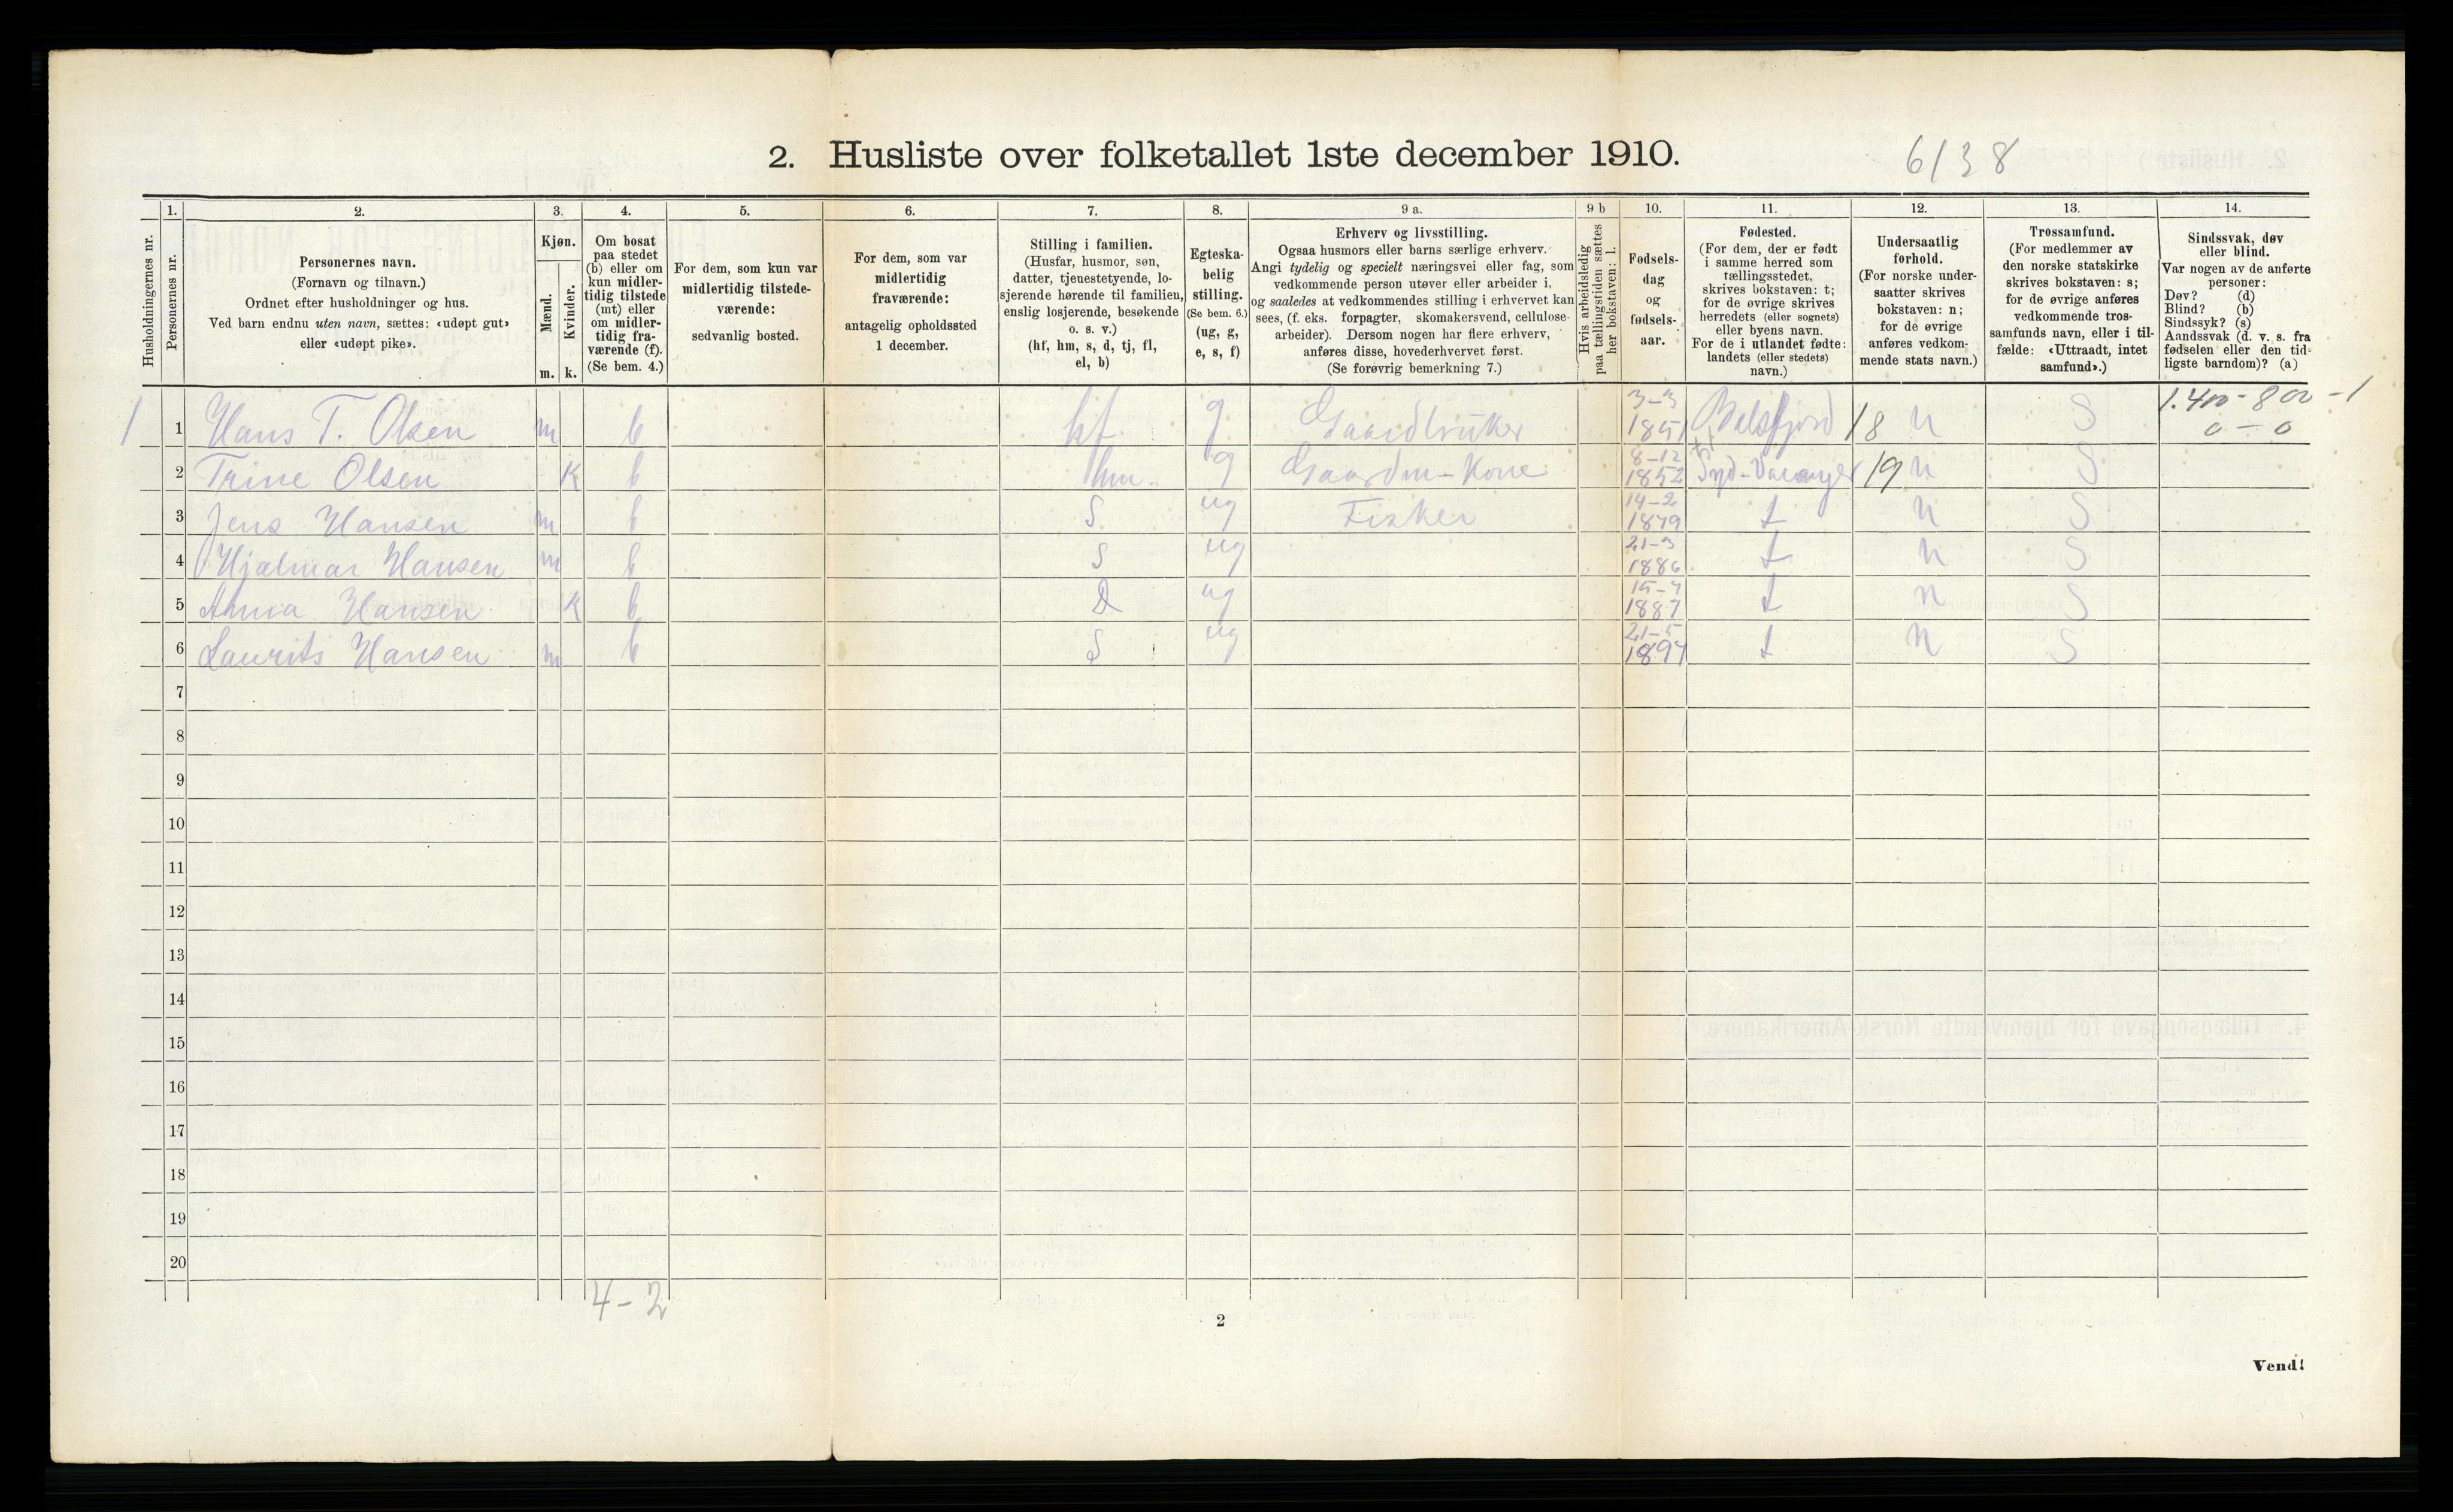 2. Husliste over folketallet 1ste december 1910.
6138
Husholdningernes nr.
1.
Personernes nr.
2.
Personernes navn.
(Fornavn og tilnavn.)
Ordnet efter husholdninger og hus.
Ved barn endnu uten navn, sættes: «udøpt gut»
eller «udøpt pike».
3.
Kjøn.
Mænd.
Kvinder.
m. k.
4.
Om bosat
paa stedet
(b) eller om
kun midler-
tidig tilstede
(mt) eller
om midler-
tidig fra-
værende (f).
(Se bem. 4.)
5.
For dem, som kun var
midlertidig tilstede-
værende:
sedvanlig bosted.
6.
For dem, som var
midlertidig
fraværende:
antagelig opholdssted
1 december.
7.
Stilling i familien.
(Husfar, husmor, søn,
datter, tjenestetyende, lo-
sjerende hørende til familien,
enslig losjerende, besøkende
o. s. v.)
(hf, hm, s, d, tj, fl,
el, b)
8.
Egteska-
belig
stilling.
(Se bem. 6.)
(ug, g,
e, s, f)
9 a.
Erhverv og livsstilling.
Ogsaa husmors eller barns særlige erhverv.
Angi tydelig og specielt næringsvei eller fag, som
vedkommende person utøver eller arbeider i,
og saaledes at vedkommendes stilling i erhvervet kan
sees, (f. eks. forpagter, skomakersvend, cellulose-
arbeider). Dersom nogen har flere erhverv,
anføres disse, hovederhvervet først.
(Se forøvrig bemerkning 7.)
9 b
Hvis arbeidsledig
paa tællingstiden sættes
her bokstaven: l.
10.
Fødsels-
dag
og
fødsels-
aar.
11.
Fødested.
(For dem, der er født
i samme herred som
tællingsstedet,
skrives bokstaven: t;
for de øvrige skrives
herredets (eller sognets)
eller byens navn.
For de i utlandet fødte:
landets (eller stedets)
navn.)
12.
Undersaatlig
forhold.
(For norske under-
saatter skrives
bokstaven: n;
for de øvrige
anføres vedkom-
mende stats navn.)
13.
Trossamfund.
(For medlemmer av
den norske statskirke
skrives bokstaven: s;
for de øvrige anføres
vedkommende tros-
samfunds navn, eller i til-
fælde: «Uttraadt, intet
samfund».)
14.
Sindssvak, døv
eller blind.
Var nogen av de anførte
personer:
Døv? (d)
Blind? (b)
Sindssyk? (s)
Aandssvak (d. v. s. fra
fødselen eller den tid-
ligste barndom)? (a)
1 1 Hans T. Olsen m b hf g Gaardbruker 3-3 1851 Balsfjord 18 n S 1.400-800-1
0-0
2 Trine Olsen K b hm g Gaardm-Kone 8-12 1852 Syd-Varanger 19 n S
3 Jens Hansen m b S ug Fisker 14-2 1879 t n S
4 Hjalmar Hansen m b S ug 21-3 1886 t n S
5 Anna Hansen K b D ug 1887 t n S
6 Laurits Hansen m b S ug 21-5 t n S
7
8
9
10
11
12
13
14
15
16
17
18
19
20
4-2
2
Vend!